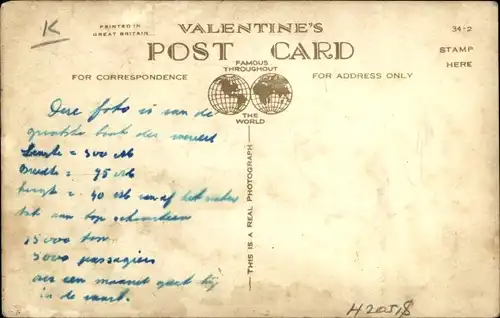 K
PRINTED IN
GREAT BRITAIN
VALENTINE'S
POST CARD
34-2
STAMP
HERE
FOR CORRESPONDENCE
FAMOUS
THROUGHOUT
THE
WORLD
FOR ADDRESS ONLY
THIS IS A REAL PHOTOGRAPH
Deze foto is van de
grootste boot der wereld
Lengte = 300 M
Breedte = 35 M
hoogte = 40 M vanaf het water
tot aan top schoorsteen
75000 ton
5000 passagiers
over een maand gaat hij
in de vaart.
H20518